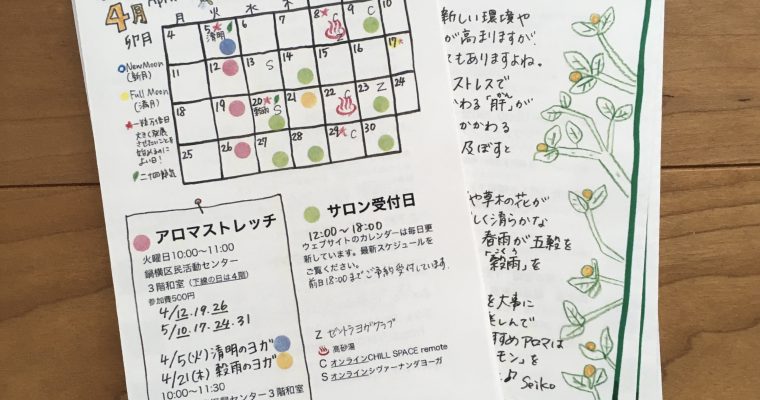 4月
卯月
月 火 水 木
4 5 6 7 8 9 10
清明
C
Z
11 12 13 14 15 16 17
S
18 19 20 21 22 23 24
穀雨
S
C
Z
25 26 27 28 29 30
C
New Moon
(新月)
Full Moon
(満月)
一粒万倍日
大きく発展
させたいことを
始めるのに
よい日!
二十四節気
アロマストレッチ
火曜日10:00〜11:00
鍋横区民活動センター
3階和室(下線の日は4階)
参加費500円
4/12.19.26
5/10.17.24.31
4/5(火)清明のヨガ
4/21(木)穀雨のヨガ
10:00〜11:30
センター3階和室
サロン受付日
12:00〜18:00
ウェブサイトのカレンダーは毎日更
新しています。最新スケジュールを
ご覧ください。
前日18:00までご予約受付しています。
Z ゼントラヨガクラブ
高砂湯
C オンラインCHILL SPACE remote
S オンラインシヴァーナンダヨーガ
新しい環境や
が高まりますが
もありますよね。
ストレスで
かわる「肝」が
かかわる
及ぼすと
や草木の花が
しく清らかな
春雨が五穀を
「穀雨」を
こくう
を大事に
楽しんで
すすめアロマは
モン」を
♪ Seiko